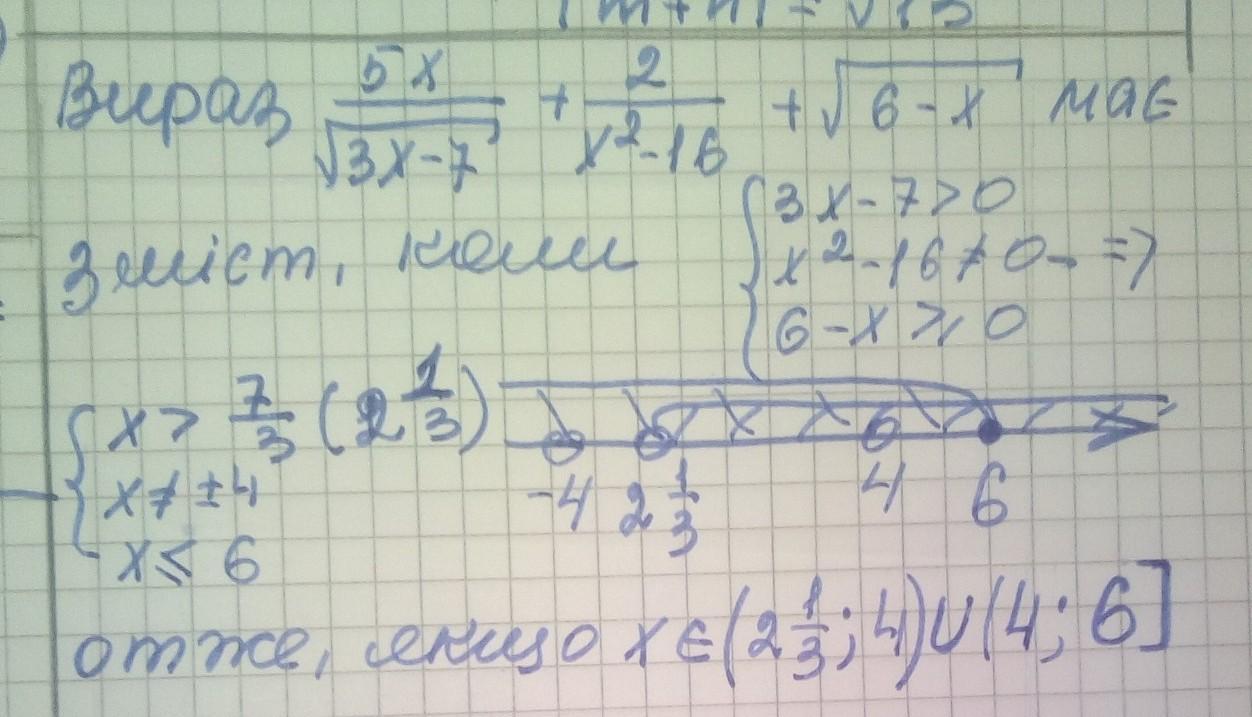 |m+n| = √13
Вираз 5x/√(3x-7) + 2/(x²-16) + √(6-x) має
зміст, коли { 3x-7>0
x²-16≠0 =>
6-x⩾0
{ x > 7/3 (2 1/3)
x ≠ ±4
x ⩽ 6
-4 2 1/3 4 6
x
отже, якщо x∈(2 1/3; 4)∪(4; 6]